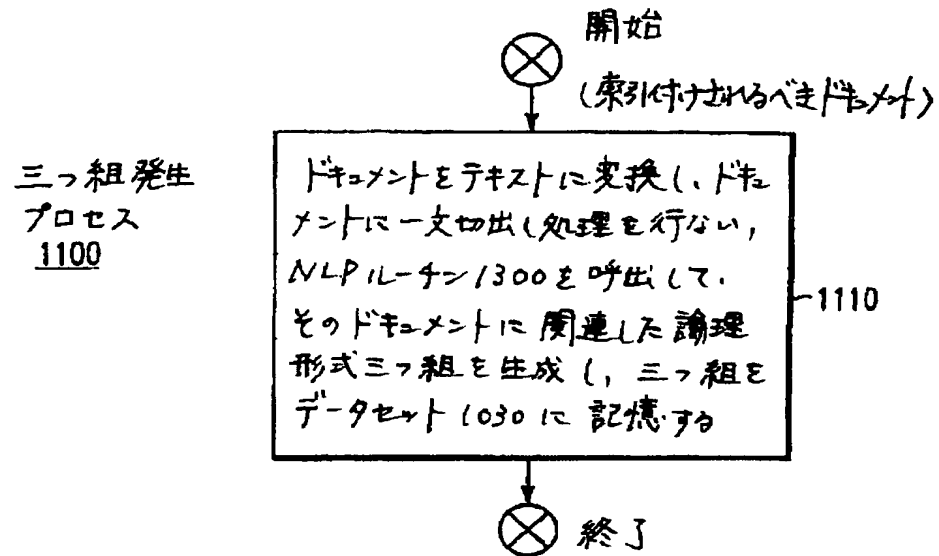 開始
(索引付けされるべきドキュメント)
三つ組発生
プロセス
1100
ドキュメントをテキストに変換し、ドキュ
メントに一文切出し処理を行ない,
NLPルーチン1300を呼出して、
そのドキュメントに関連した論理
形式三つ組を生成し, 三つ組を
データセット1030に記憶する
1110
終了